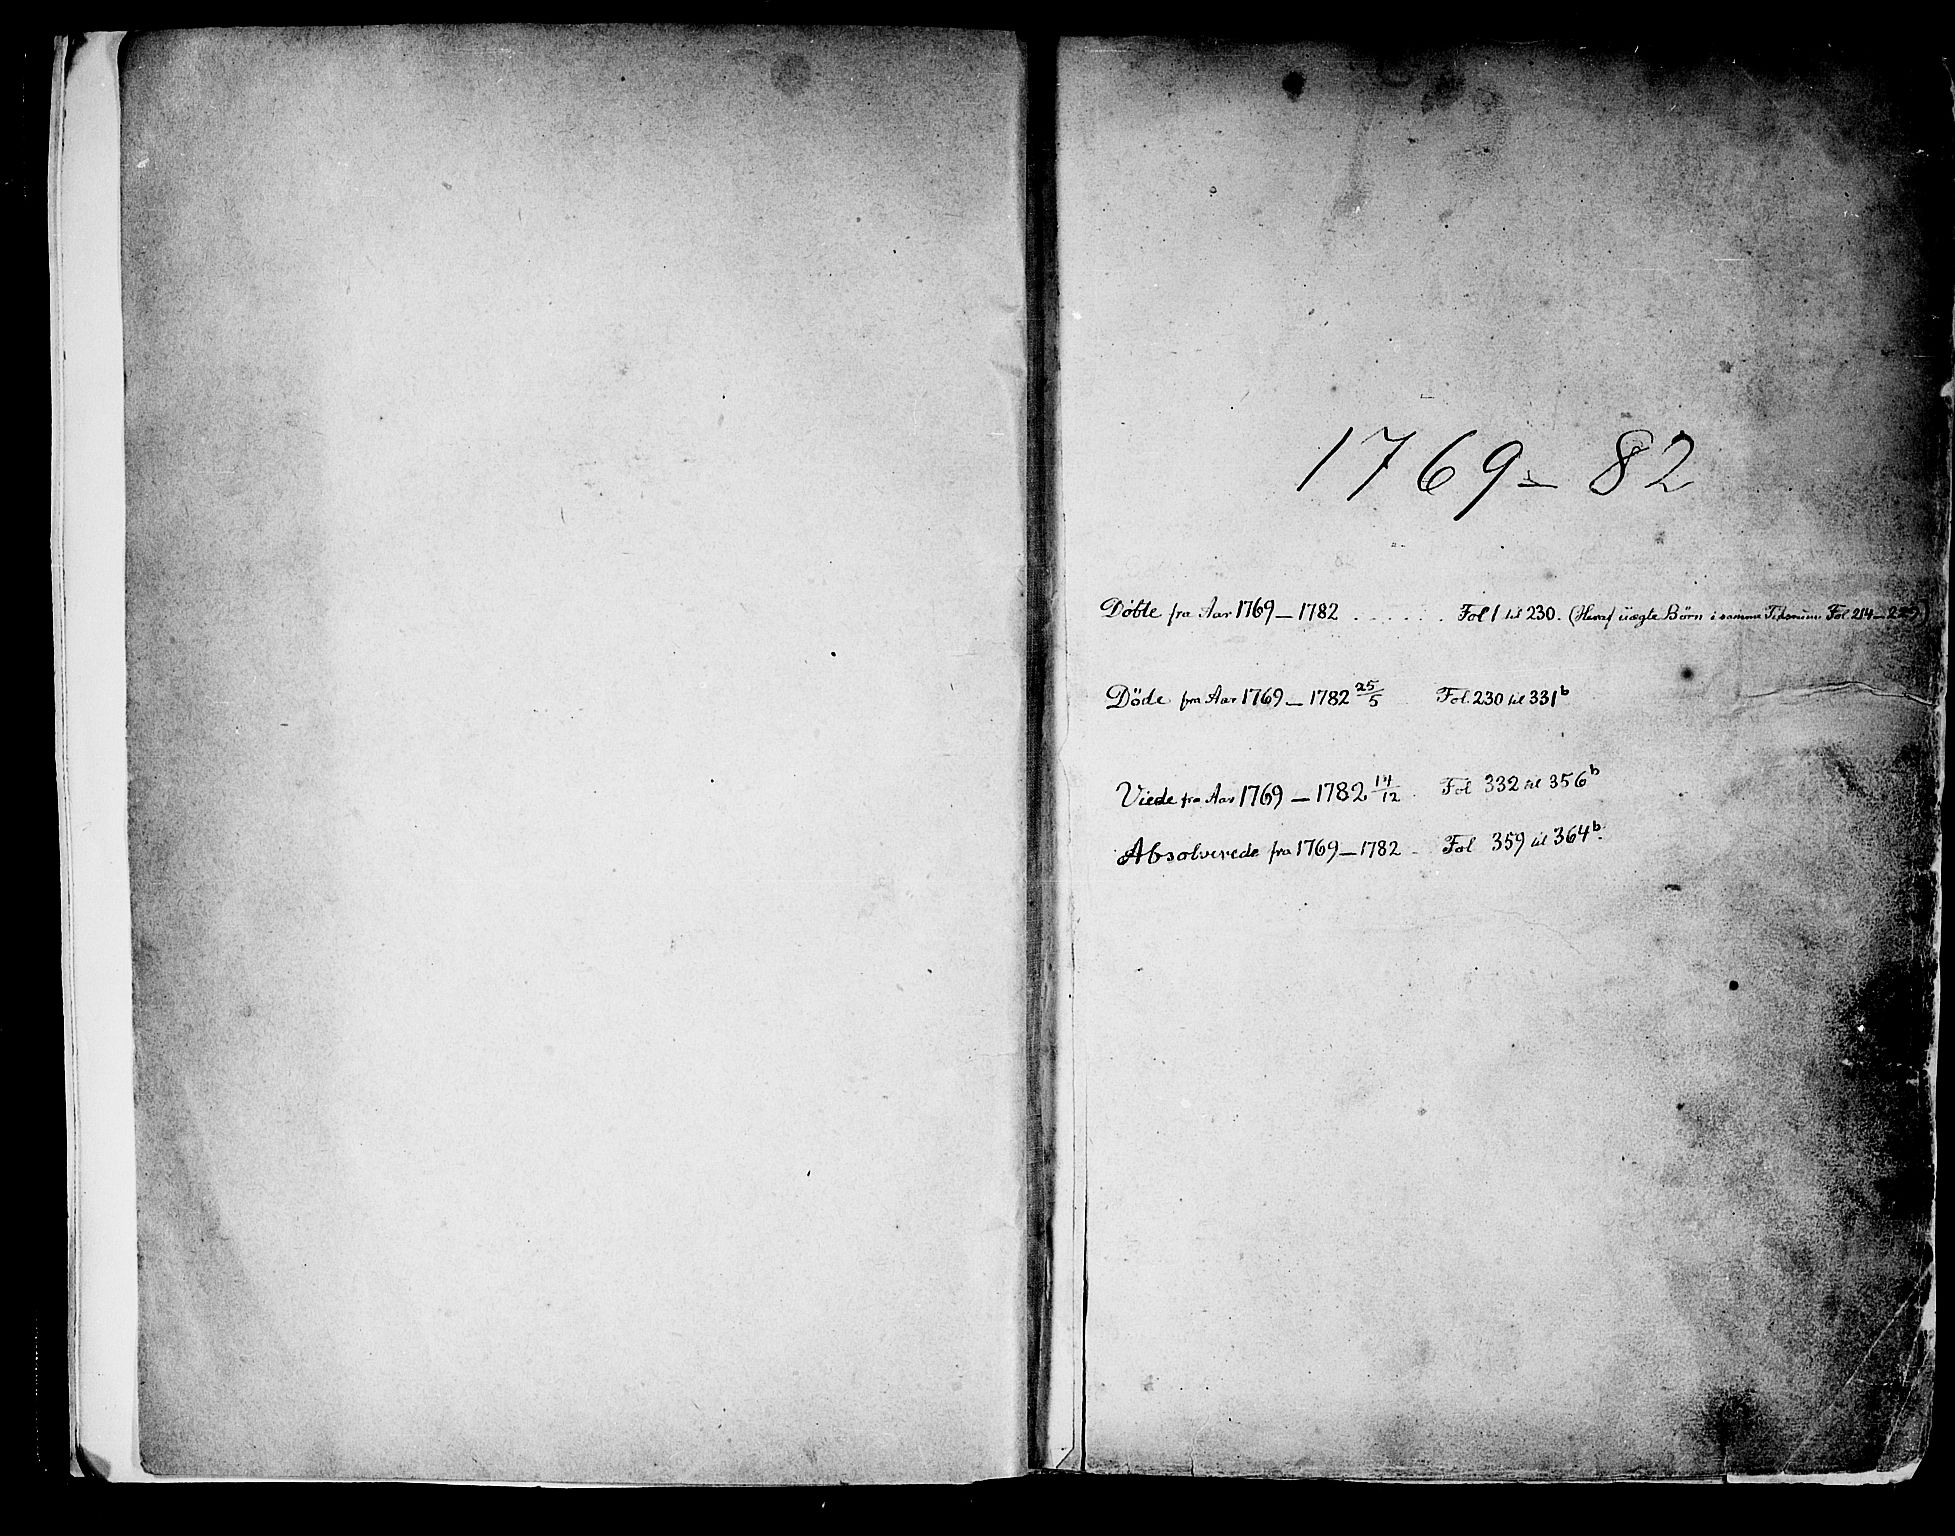 1769 – 82
Döbte fra Aar 1769 – 1782 . . . . . . Fol 1 til 230. (Heraf uægte Børn i samme Tidsrum Fol. 214 –
Döde fra Aar 1769 – 1782 25/5 Fol. 230 til 331b
Viede fra Aar 1769 – 1782 14/12 Fol 332 til 356b
Absolverede fra 1769 – 1782 . Fol 359 til 364b.